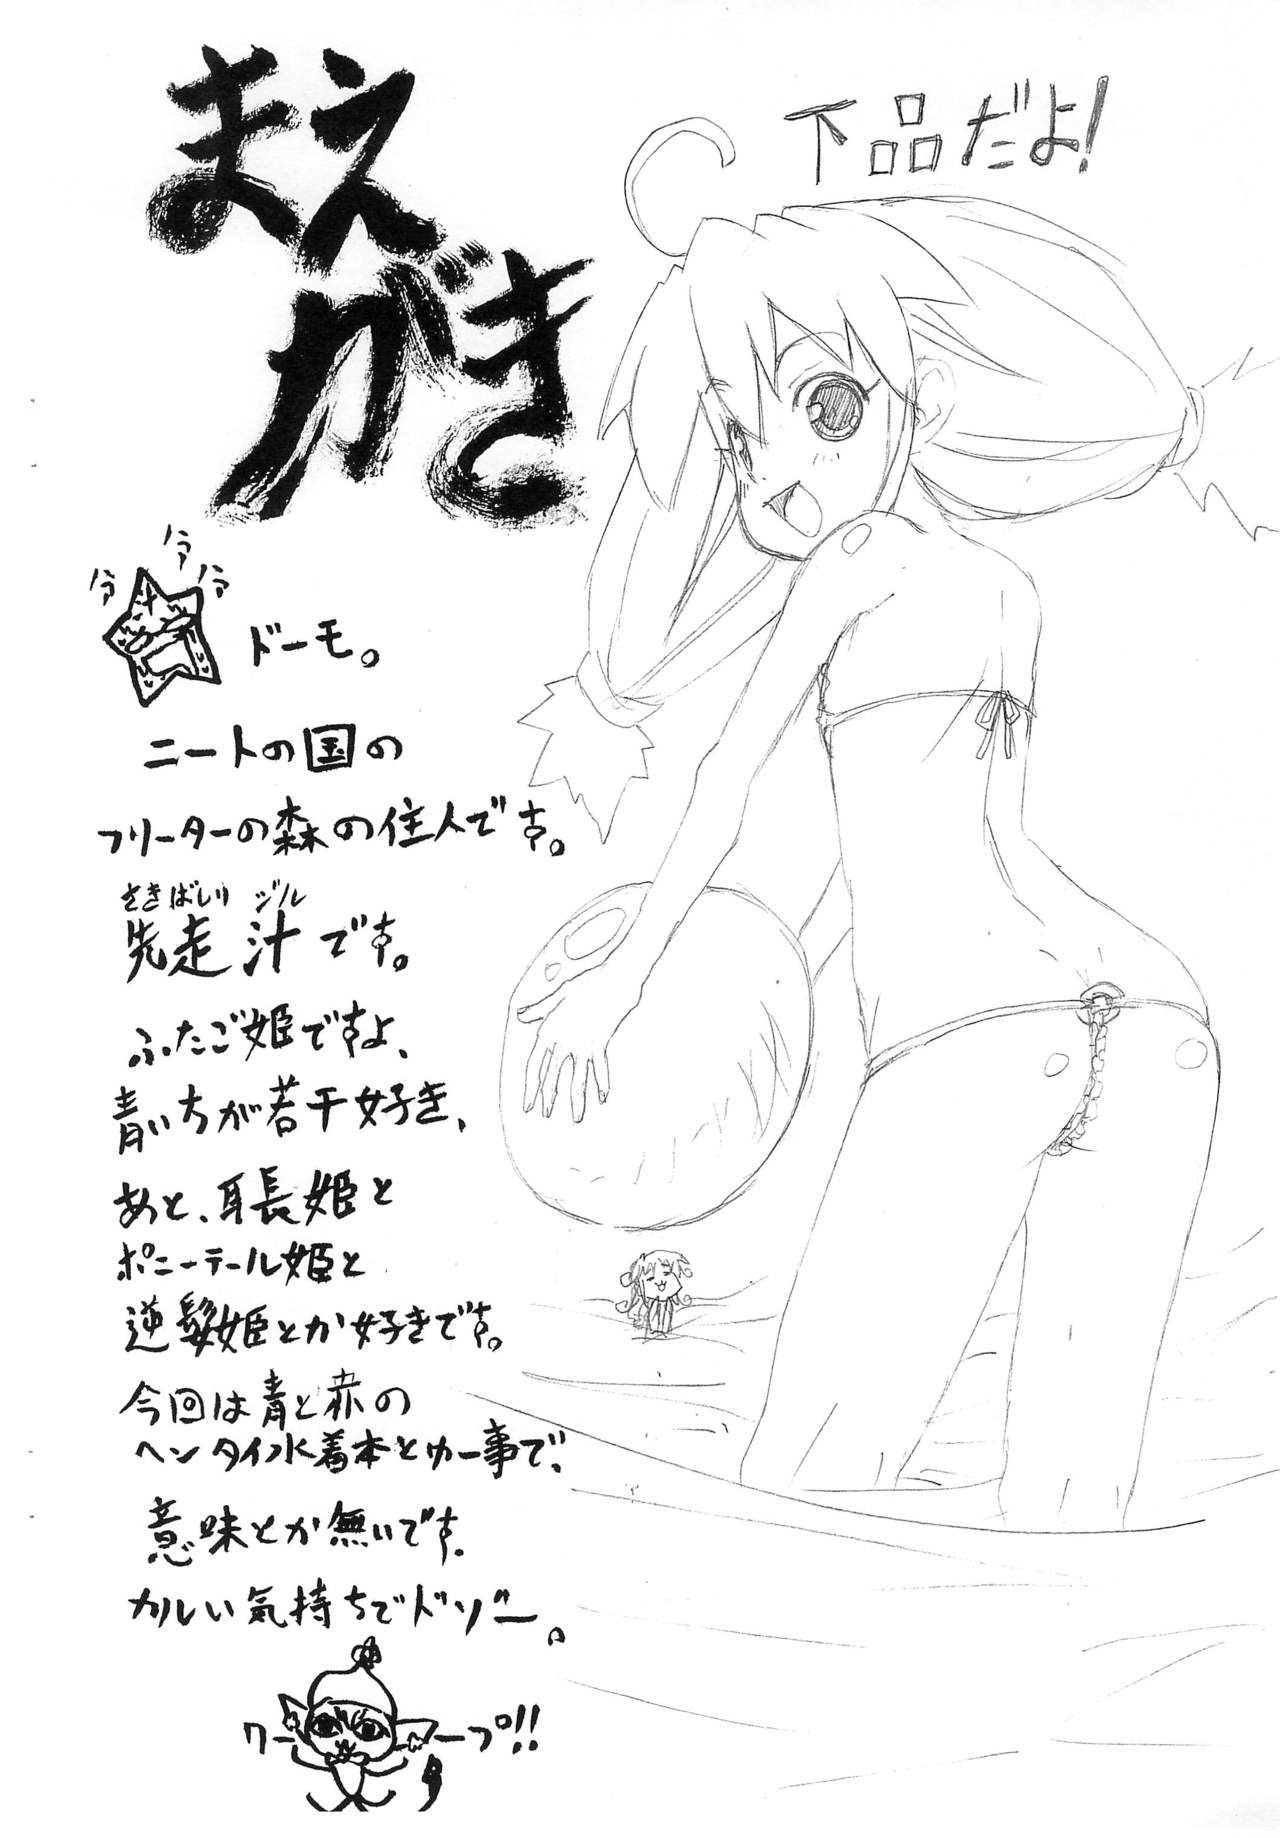 まえ
がき
下品だよ!
ドーモ。
ニートの国の
フリーターの森の住人です。
さきばしり ジル
先走 汁 です。
ふたご姫ですよ、
青いちが若干好き、
あと、耳長姫と
ポニーテール姫と
逆髪姫とか好きです。
今回は青と赤の
ヘンタイ水着本とゆー事で、
意味とか無いです。
カルい気持ちでドゾー。
ープ!!